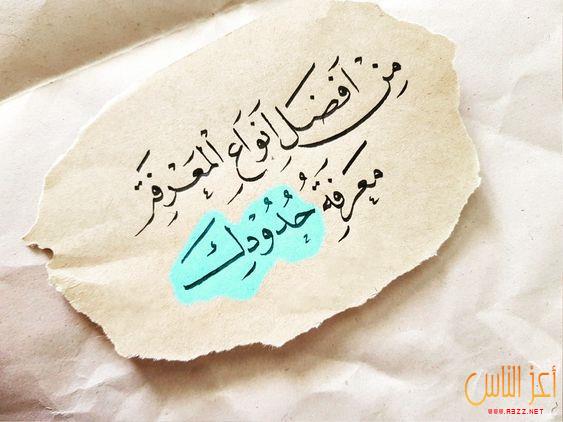 مِنْ أَفضَلِ أَنوَاعِ الْمَعْرِفَةِ
مَعْرِفَةُ حُدُودِكَ
أعز الناس
WWW.A3ZZ.NET